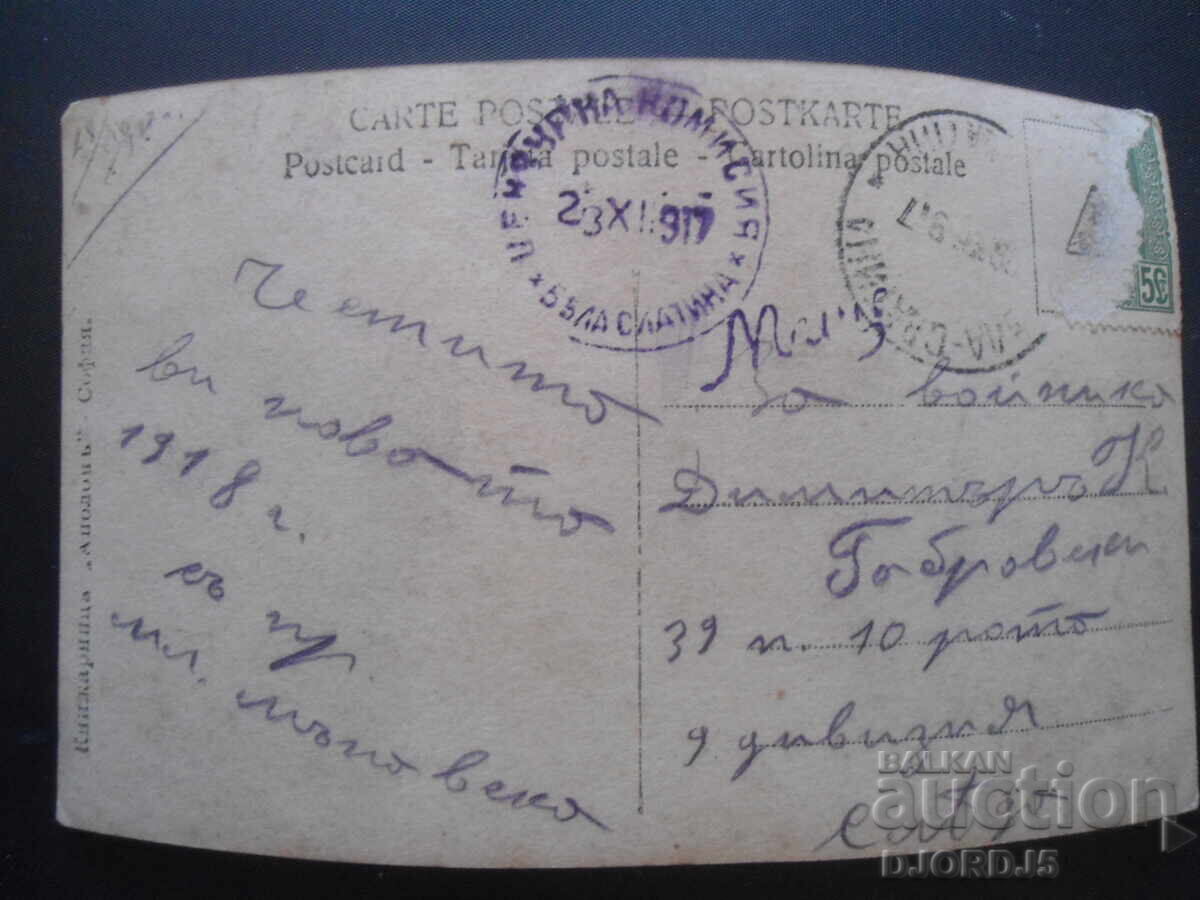 CARTE POSTALE - POSTKARTE
Postcard - Tarjeta postale - Cartolina postale
ЦЕНЗУРНА КОМИСИЯ
23 XII 917
* БѢЛА СЛАТИНА *
БѢЛА-СЛАТИНА
5
Книжарница „Аполонъ" - София.
Честито
ви новото
1918 г.
съ
мл.
За войника
Димитъръ К
Габровски
39 п. 10 рота
9 дивизия
BALKAN
auction
DJORDJ5